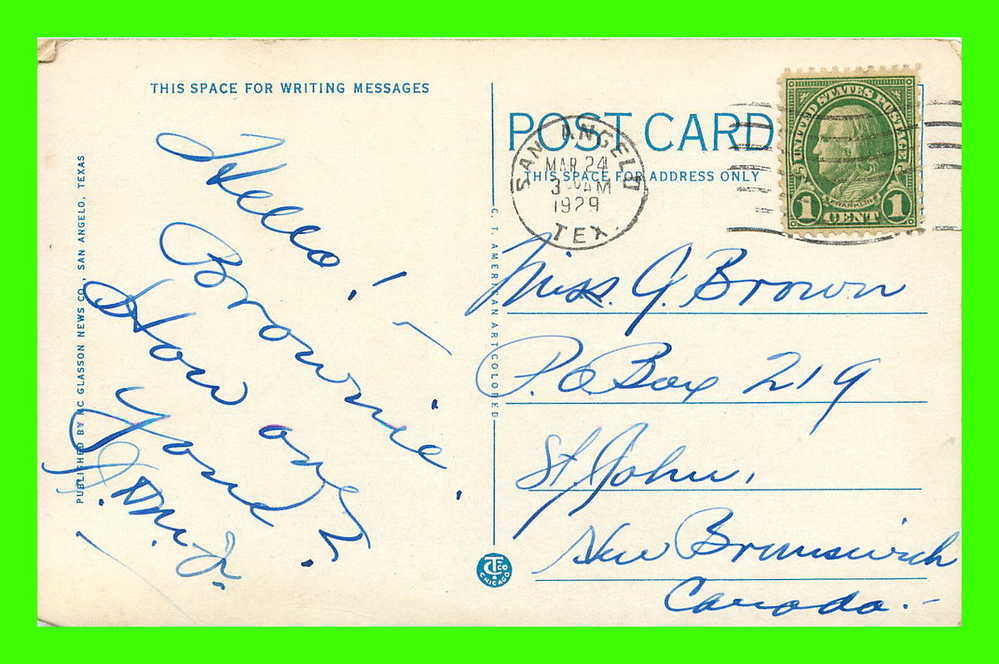 THIS SPACE FOR WRITING MESSAGES
Hello! -
Brownie.
How are
you?
PUBLISHED BY MC GLASSON NEWS CO., SAN ANGELO, TEXAS
C. T. AMERICAN ART COLORED
CTCO
CHICAGO
POST CARD
THIS SPACE FOR ADDRESS ONLY
SAN ANGELO
MAR 24
3 AM
1929
TEX.
UNITED STATES POSTAGE
FRANKLIN
1 CENT 1
Miss. J. Brown
P.O Box 219
St. John,
New Brunswick
Canada.-